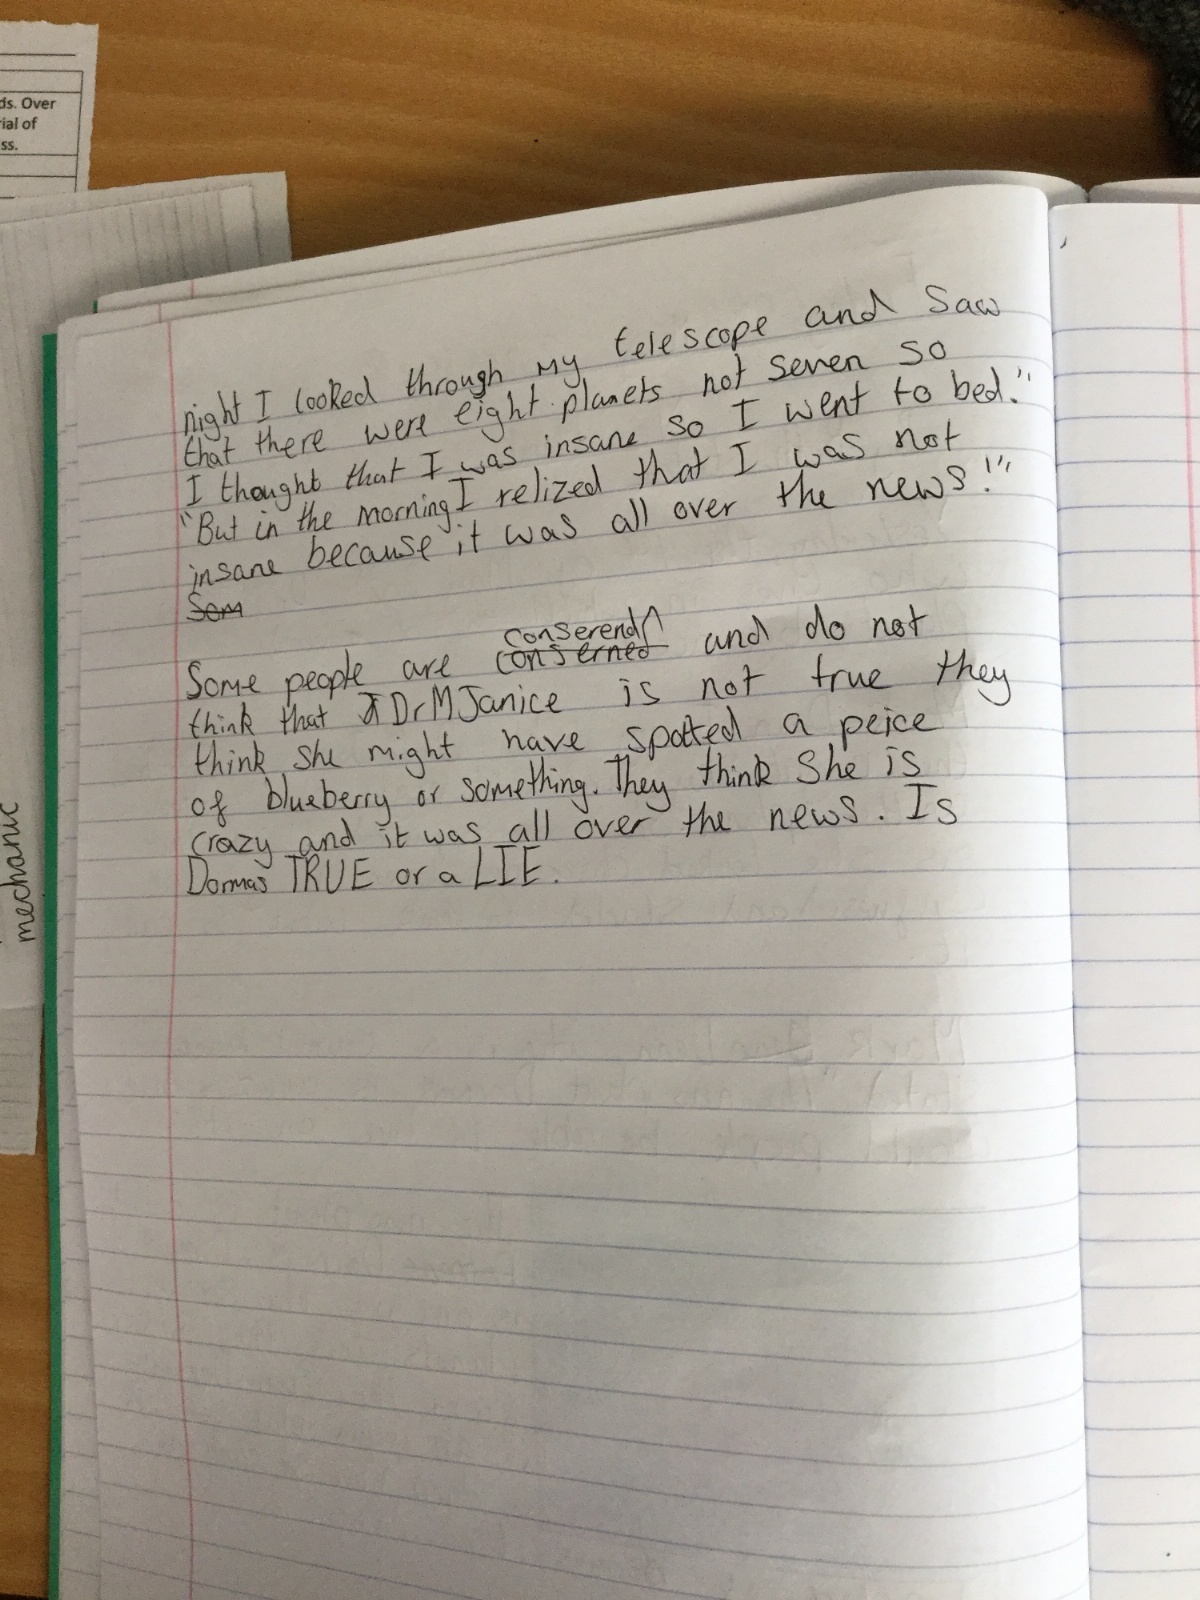 ds. Over
ial of
ss.
mechanic
night I looked through my telescope and Saw
that there were eight planets not seven so
I thought that I was insane so I went to bed."
"But in the morning I relized that I was not
insane because it was all over the news!"
Som
Some people are conserned conserend and do not
think that Dr M Janice is not true they
think she might have spotted a peice
of blueberry or something. They think She is
crazy and it was all over the news. Is
Dormas TRUE or a LIE.